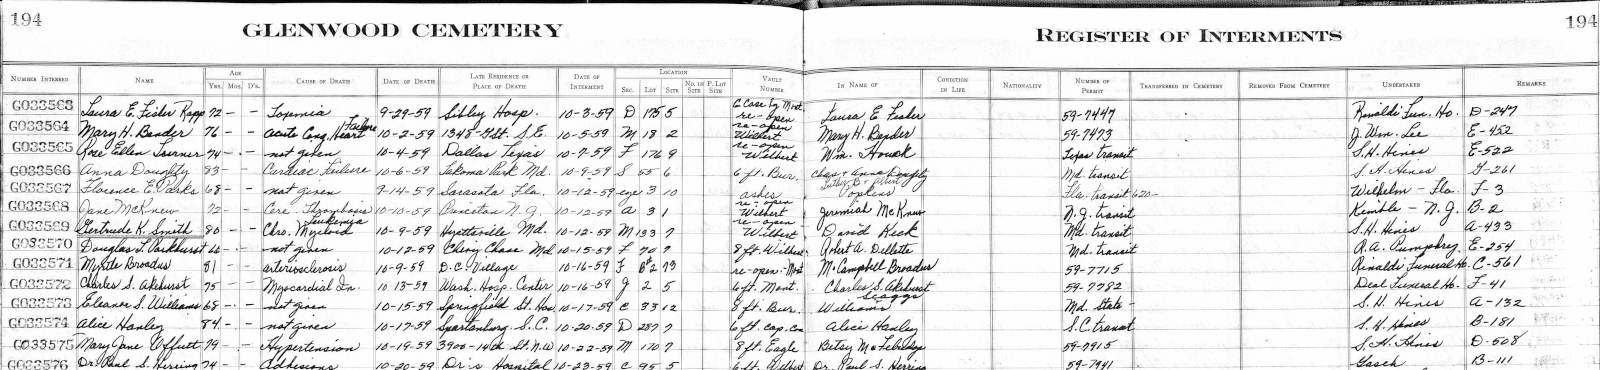 194
GLENWOOD CEMETERY
REGISTER OF INTERMENTS
194
NUMBER INTERRED NAME AGE YRS. MOS. D'S. CAUSE OF DEATH DATE OF DEATH LATE RESIDENCE OR PLACE OF DEATH DATE OF INTERMENT LOCATION SEC. LOT SITE NO. IN SITE P. LOT SITE VAULT NUMBER IN NAME OF CONDITION IN LIFE NATIONALITY NUMBER OF PERMIT TRANSFERRED IN CEMETERY REMOVED FROM CEMETERY UNDERTAKER REMARKS
G033563 Laura E. Fisher Rapp 72 - - Toxemia 9-29-59 Sibley Hosp. 10-3-59 D 175 5 re-open Laura E Fisher 59-7447 Rinaldi Fun. Ho. D-247
G033564 Mary H. Bender 76 - - Acute Cong. Heart Failure 10-2-59 1348- St. S.E. 10-5-59 M 18 2 re-open Wilbert Mary H. Bender 59-7473 J. Wm. Lee E-452
G033565 Rose Ellen 74 - - not given 10-4-59 Dallas Texas 10-7-59 F 176 9 re-open Wilbert Wm. Houck Texas transit S.H. Hines E-522
G033566 Anna Doughty 83 - - Cardiac Failure 10-6-59 Takoma Park Md. 10-9-59 S 55 6 6 ft. Bur. Chas & Anna Doughty Md. transit S. H. Hines F-261
G033567 Florence E. Parks 68 - - not given 9-14-59 Sarasota Fla. 10-12-59 3 10 ashes Luther B & Albert Popkins Fla. transit 620- Wilhelm - Fla. F-3
G033568 Jane McKnew 72 - - Cere. Thrombosis 10-10-59 Princeton N.J. 10-12-59 A 3 1 re-open Wilbert Jeremiah McKnew N.J. transit Kimble - N.J. B-2
G033569 Gertrude K. Smith 80 - - Chro. Myeloid Leukemia 10-9-59 Hyattsville Md. 10-12-59 M 133 7 re-open Wilbert David Keck Md. transit S.H. Hines A-433
G033570 Douglas L. Parkhurst 66 - - not given 10-12-59 Chevy Chase Md. 10-15-59 F 70 7 8 ft. Wilbert Robert A. Dellette Md. transit R.A. Pumphrey E-254
G033571 Myrtle Broadus 81 - - arteriosclerosis 10-9-59 D.C. Village 10-16-59 F 73 re-open-Mont. McCampbell Broadus 59-7715 Rinaldi Funeral Ho. C-561
G033572 Charles S. Akehurst 75 - - Myocardial In. 10-13-59 Wash. Hosp. Center 10-16-59 J 2 5 6 ft. Mont. Charles S. Akehurst 59-7782 Deal Funeral Ho. F-41
G033573 Eleanor S. Williams 68 - - not given 10-15-59 Springfield St. Hos. 10-17-59 C 33 12 8 ft. Bur. Scaggs Williams Md. State - S.H. Hines A-132
G033574 Alice Hanley 84 - - not given 10-17-59 Spartanburg, S.C. 10-20-59 D 257 7 6 ft. Alice Hanley S.C. transit S.H. Hines B-181
G033575 Mary Jane Offutt 79 - - Hypertension 10-19-59 3900-14th St. N.W 10-22-59 M 170 7 8 ft. Eagle Betsy 59-7915 S.H. Hines D-508
G033576 Dr. Paul S. Herring 74 - - Adhesions 10-20-59 Dr's Hospital 10-23-59 C 95 5 6 ft. Wilbert Dr. Paul S. Herring 59-7941 Gasch B-111